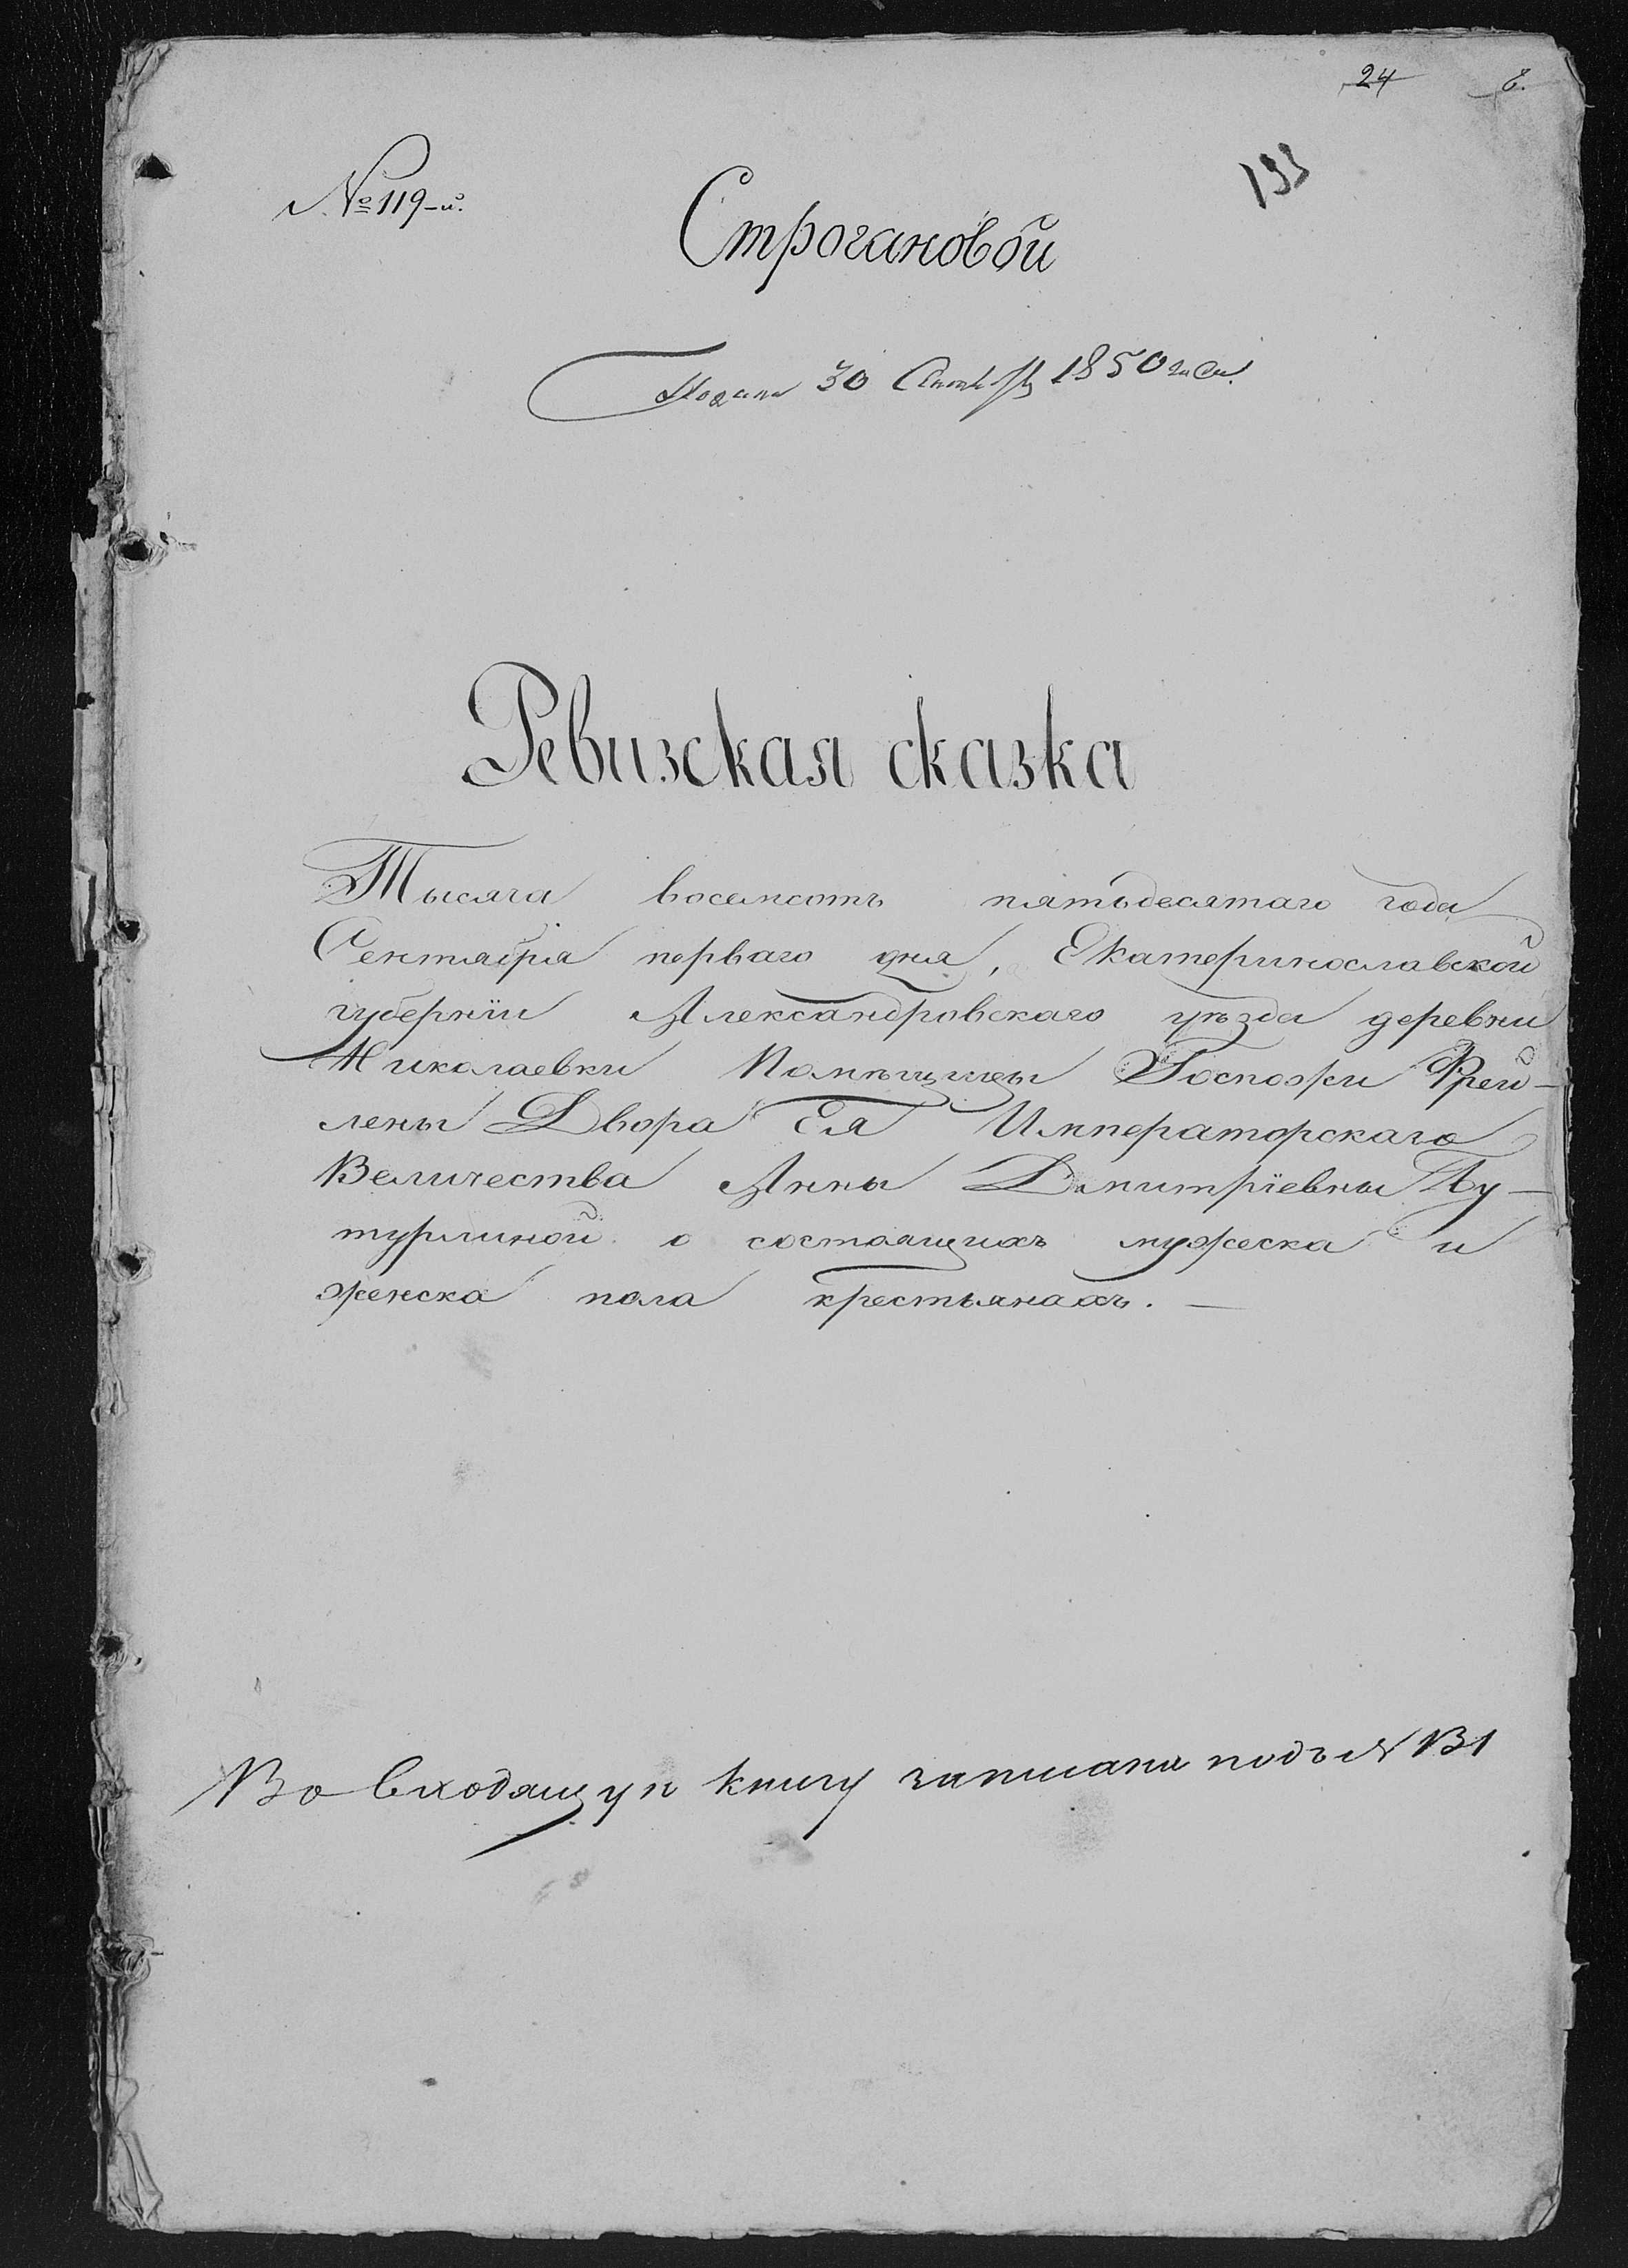 24
№ 119-й.
193
Строгановой
Подана 30 Сентября 1850 года
Ревизская сказка
Тысяча восемсотъ пятьдесятаго года
Сентября перваго дня, Екатеринославской
губернїи Александровскаго уѣзда деревни
Николаевки Помѣщицы Госпожи Фрей-
лены Двора Ея Императорскаго
Величества Анны Дмитрїевны Бу-
турлиной о состоящихъ мужеска и
женска пола крестьянахъ. —
Во входящую книгу записана подъ №